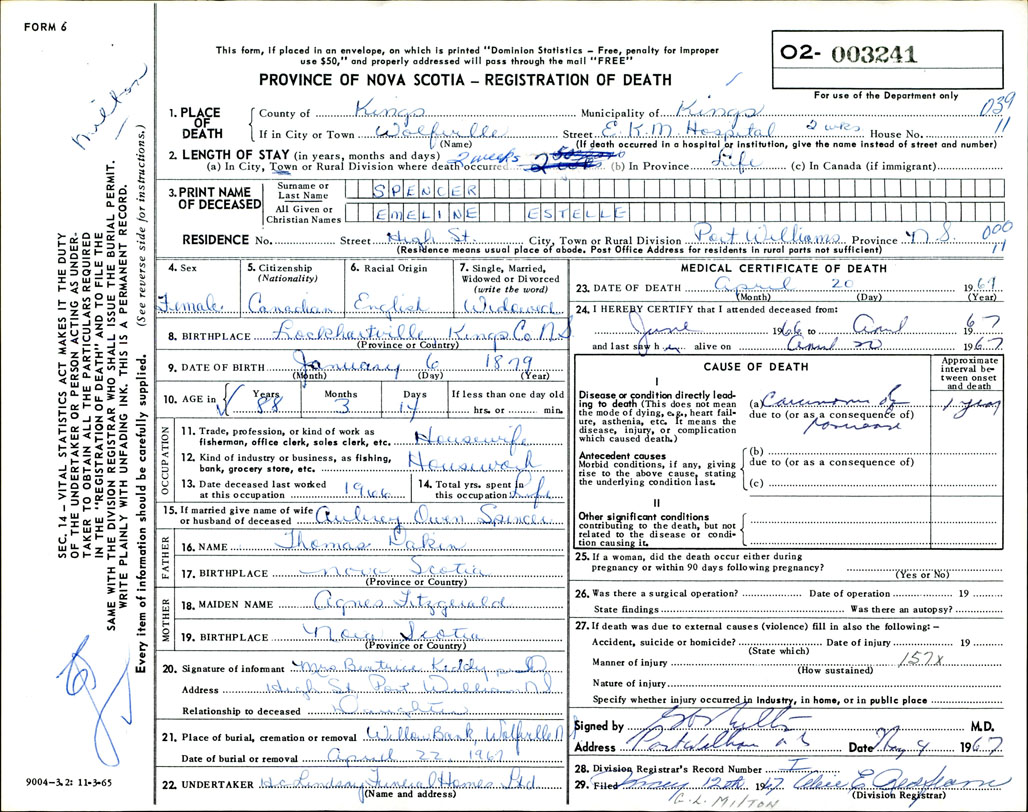 FORM 6
This form, if placed in an envelope, on which is printed "Dominion Statistics – Free, penalty for improper
use $50," and properly addressed will pass through the mail "FREE"
PROVINCE OF NOVA SCOTIA – REGISTRATION OF DEATH
O2- 003241
For use of the Department only
Milton
039
11
1. PLACE OF DEATH
County of Kings Municipality of Kings
If in City or Town Wolfville Street E.K.M. Hospital 2 wks House No.
(Name) (If death occurred in a hospital or institution, give the name instead of street and number)
2. LENGTH OF STAY (in years, months and days)
(a) In City, Town or Rural Division where death occurred 2 weeks (b) In Province Life (c) In Canada (if immigrant)
3. PRINT NAME OF DECEASED
Surname or Last Name SPENCER
All Given or Christian Names EMELINE ESTELLE
RESIDENCE No. Street High St. City, Town or Rural Division Port Williams Province N.S. 000
11
(Residence means usual place of abode. Post Office Address for residents in rural parts not sufficient)
4. Sex Female
5. Citizenship (Nationality) Canadian
6. Racial Origin English
7. Single, Married, Widowed or Divorced (write the word) Widowed
8. BIRTHPLACE Lockhartville Kings Co NS
(Province or Country)
9. DATE OF BIRTH January 6 1879
(Month) (Day) (Year)
10. AGE in Years 88 Months 3 Days 14 If less than one day old hrs. or min.
OCCUPATION
11. Trade, profession, or kind of work as fisherman, office clerk, sales clerk, etc. Housewife
12. Kind of industry or business, as fishing, bank, grocery store, etc. Housework
13. Date deceased last worked at this occupation 1966
14. Total yrs. spent in this occupation Life
15. If married give name of wife or husband of deceased Aubrey Owen Spencer
FATHER
16. NAME Thomas Lakin
17. BIRTHPLACE Nova Scotia
(Province or Country)
MOTHER
18. MAIDEN NAME Agnes Fitzgerald
19. BIRTHPLACE Nova Scotia
(Province or Country)
20. Signature of informant Mrs Beatrice Kiddy
Address High St Port Williams NS
Relationship to deceased Daughter
21. Place of burial, cremation or removal Willow Bank, Wolfville NS
Date of burial or removal April 22, 1967
22. UNDERTAKER H.C. Lindsay Funeral Homes Ltd
(Name and address)
MEDICAL CERTIFICATE OF DEATH
23. DATE OF DEATH April 20 1967
(Month) (Day) (Year)
24. I HEREBY CERTIFY that I attended deceased from:
June 1966 to April 1967
and last saw her alive on April 20 1967
CAUSE OF DEATH
Approximate interval between onset and death
I
Disease or condition directly leading to death (This does not mean the mode of dying, e.g., heart failure, asthenia, etc. It means the disease, injury, or complication which caused death.)
(a) Carcinoma of 1 year
due to (or as a consequence of)
pancreas
Antecedent causes
Morbid conditions, if any, giving rise to the above cause, stating the underlying condition last.
(b)
due to (or as a consequence of)
(c)
II
Other significant conditions
contributing to the death, but not related to the disease or condition causing it.
25. If a woman, did the death occur either during
pregnancy or within 90 days following pregnancy?
(Yes or No)
26. Was there a surgical operation? Date of operation 19
State findings Was there an autopsy?
27. If death was due to external causes (violence) fill in also the following: –
Accident, suicide or homicide? Date of injury 19
(State which)
Manner of injury 157x
(How sustained)
Nature of injury
Specify whether injury occurred in industry, in home, or in public place
Signed by M.D.
Address Port Williams NS Date May 9 1967
28. Division Registrar's Record Number I
29. Filed May 12th 1967
(Division Registrar)
C. L. MILTON
SEC. 14 – VITAL STATISTICS ACT MAKES IT THE DUTY
OF THE UNDERTAKER OR PERSON ACTING AS UNDER-
TAKER TO OBTAIN ALL THE PARTICULARS REQUIRED
IN THE "REGISTRATION OF DEATH" AND TO FILE THE
SAME WITH THE DIVISION REGISTRAR WHO SHALL ISSUE THE BURIAL PERMIT.
WRITE PLAINLY WITH UNFADING INK. THIS IS A PERMANENT RECORD.
Every item of information should be carefully supplied. (See reverse side for instructions.)
9004-3.2: 11-3-65